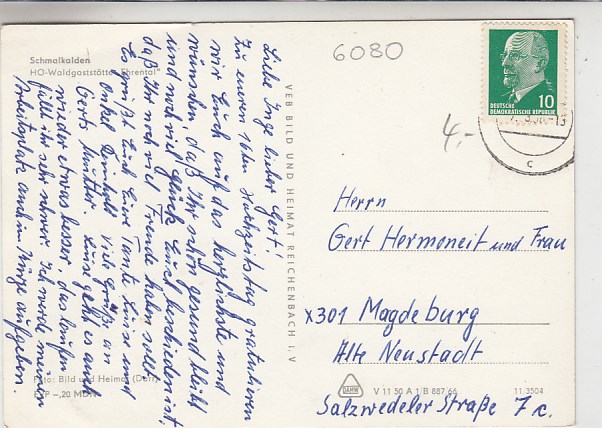 Schmalkalden
HO-Waldgaststätte „Ehrental"
Liebe Inge, lieber Gert!
Zu eurem 16ten Hochzeitstag gratulieren
wir Euch auf das herzlichste und
wünschen, daß Ihr schön gesund bleibt
und noch viel Glück Euch beschieden ist,
daß Ihr noch viel Freude haben sollt.
Es grüßt Euch Eure Tante Luise und
Onkel Viele Grüße an
Gerts Mutter. Luise geht es auch
wieder etwas besser, das laufen
fällt ihr sehr schwer. Ich werde meinen
Arbeitsplatz auch in Kürze aufgeben.
Foto: Bild und Heimat
EVP –,20 MDN
VEB BILD UND HEIMAT REICHENBACH i. V
6080
4.-
DEUTSCHE
DEMOKRATISCHE REPUBLIK
10
-13
c
Herrn
Gert Hermoneit und Frau
x301 Magdeburg
Alte Neustadt
DAHW
V 11 50 A 1/B 887/66
11 3504
Salzwedeler Straße 7c.